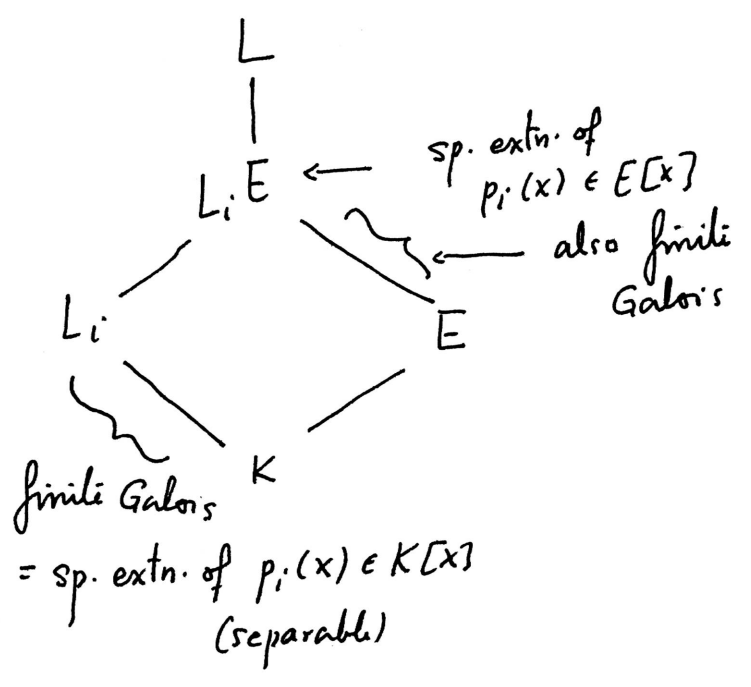 L
sp. extn. of
LᵢE ← pᵢ(x) ∈ E[x]
← also finite
Galois
Lᵢ
E
K
finite Galois
= sp. extn. of pᵢ(x) ∈ K[x]
(separable)